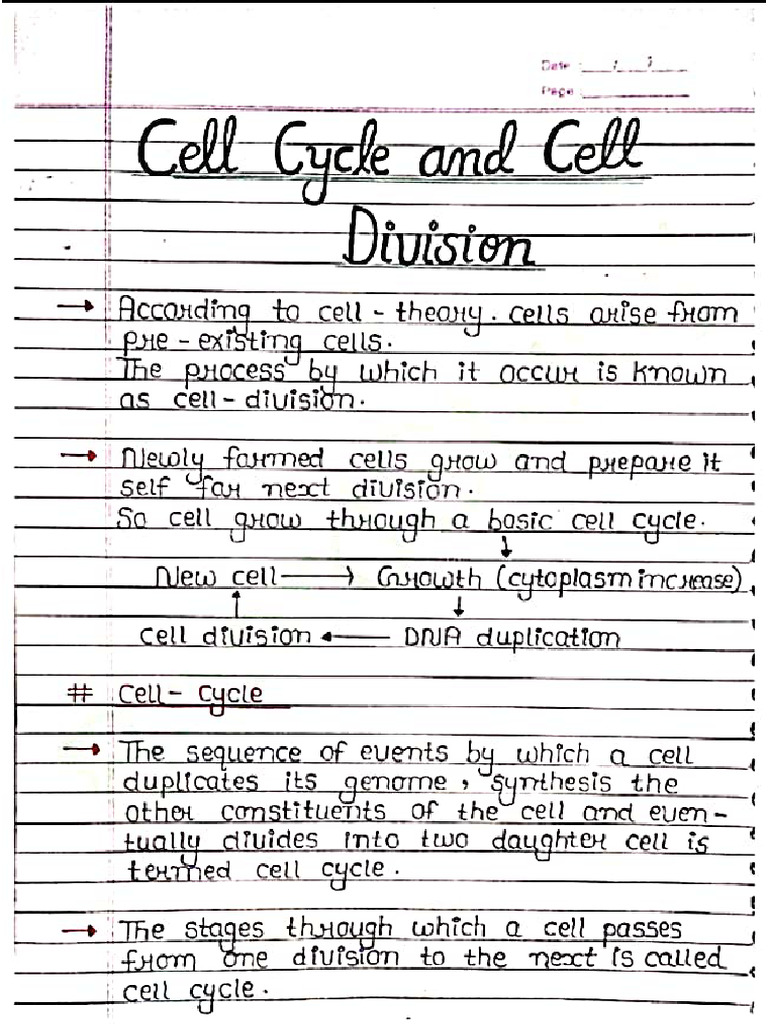 Date : / /
Page :
Cell Cycle and Cell
Division
→ According to cell - theory. cells arise from
pre - existing cells.
The process by which it occur is known
as cell - division.
→ Newly formed cells grow and prepare it
self for next division.
So cell grow through a basic cell cycle.
↓
New cell → Growth (cytoplasm increase)
↑ ↓
cell division ← DNA duplication
# Cell - Cycle
→ The sequence of events by which a cell
duplicates its genome, synthesis the
other constituents of the cell and even-
tually divides into two daughter cell is
termed cell cycle.
→ The stages through which a cell passes
from one division to the next is called
cell cycle.